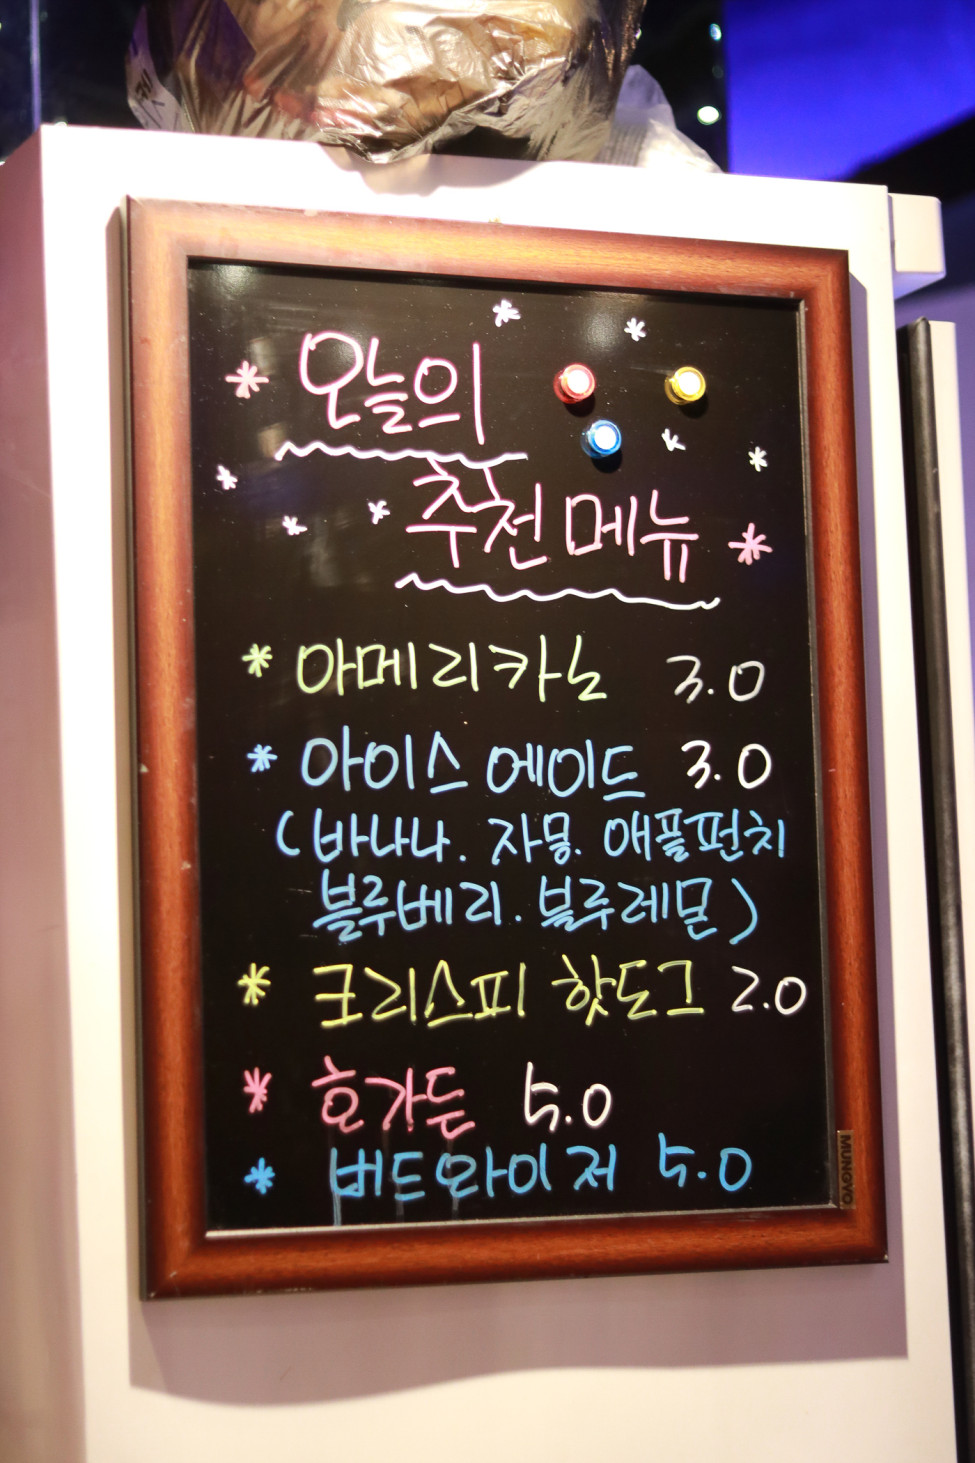 오늘의
추천메뉴
* 아메리카노 3.0
* 아이스 에이드 3.0
(바나나. 자몽. 애플펀치
블루베리. 블루레몬)
* 크리스피 핫도그 2.0
* 호가든 5.0
* 버드와이저 5.0
MUNGYO